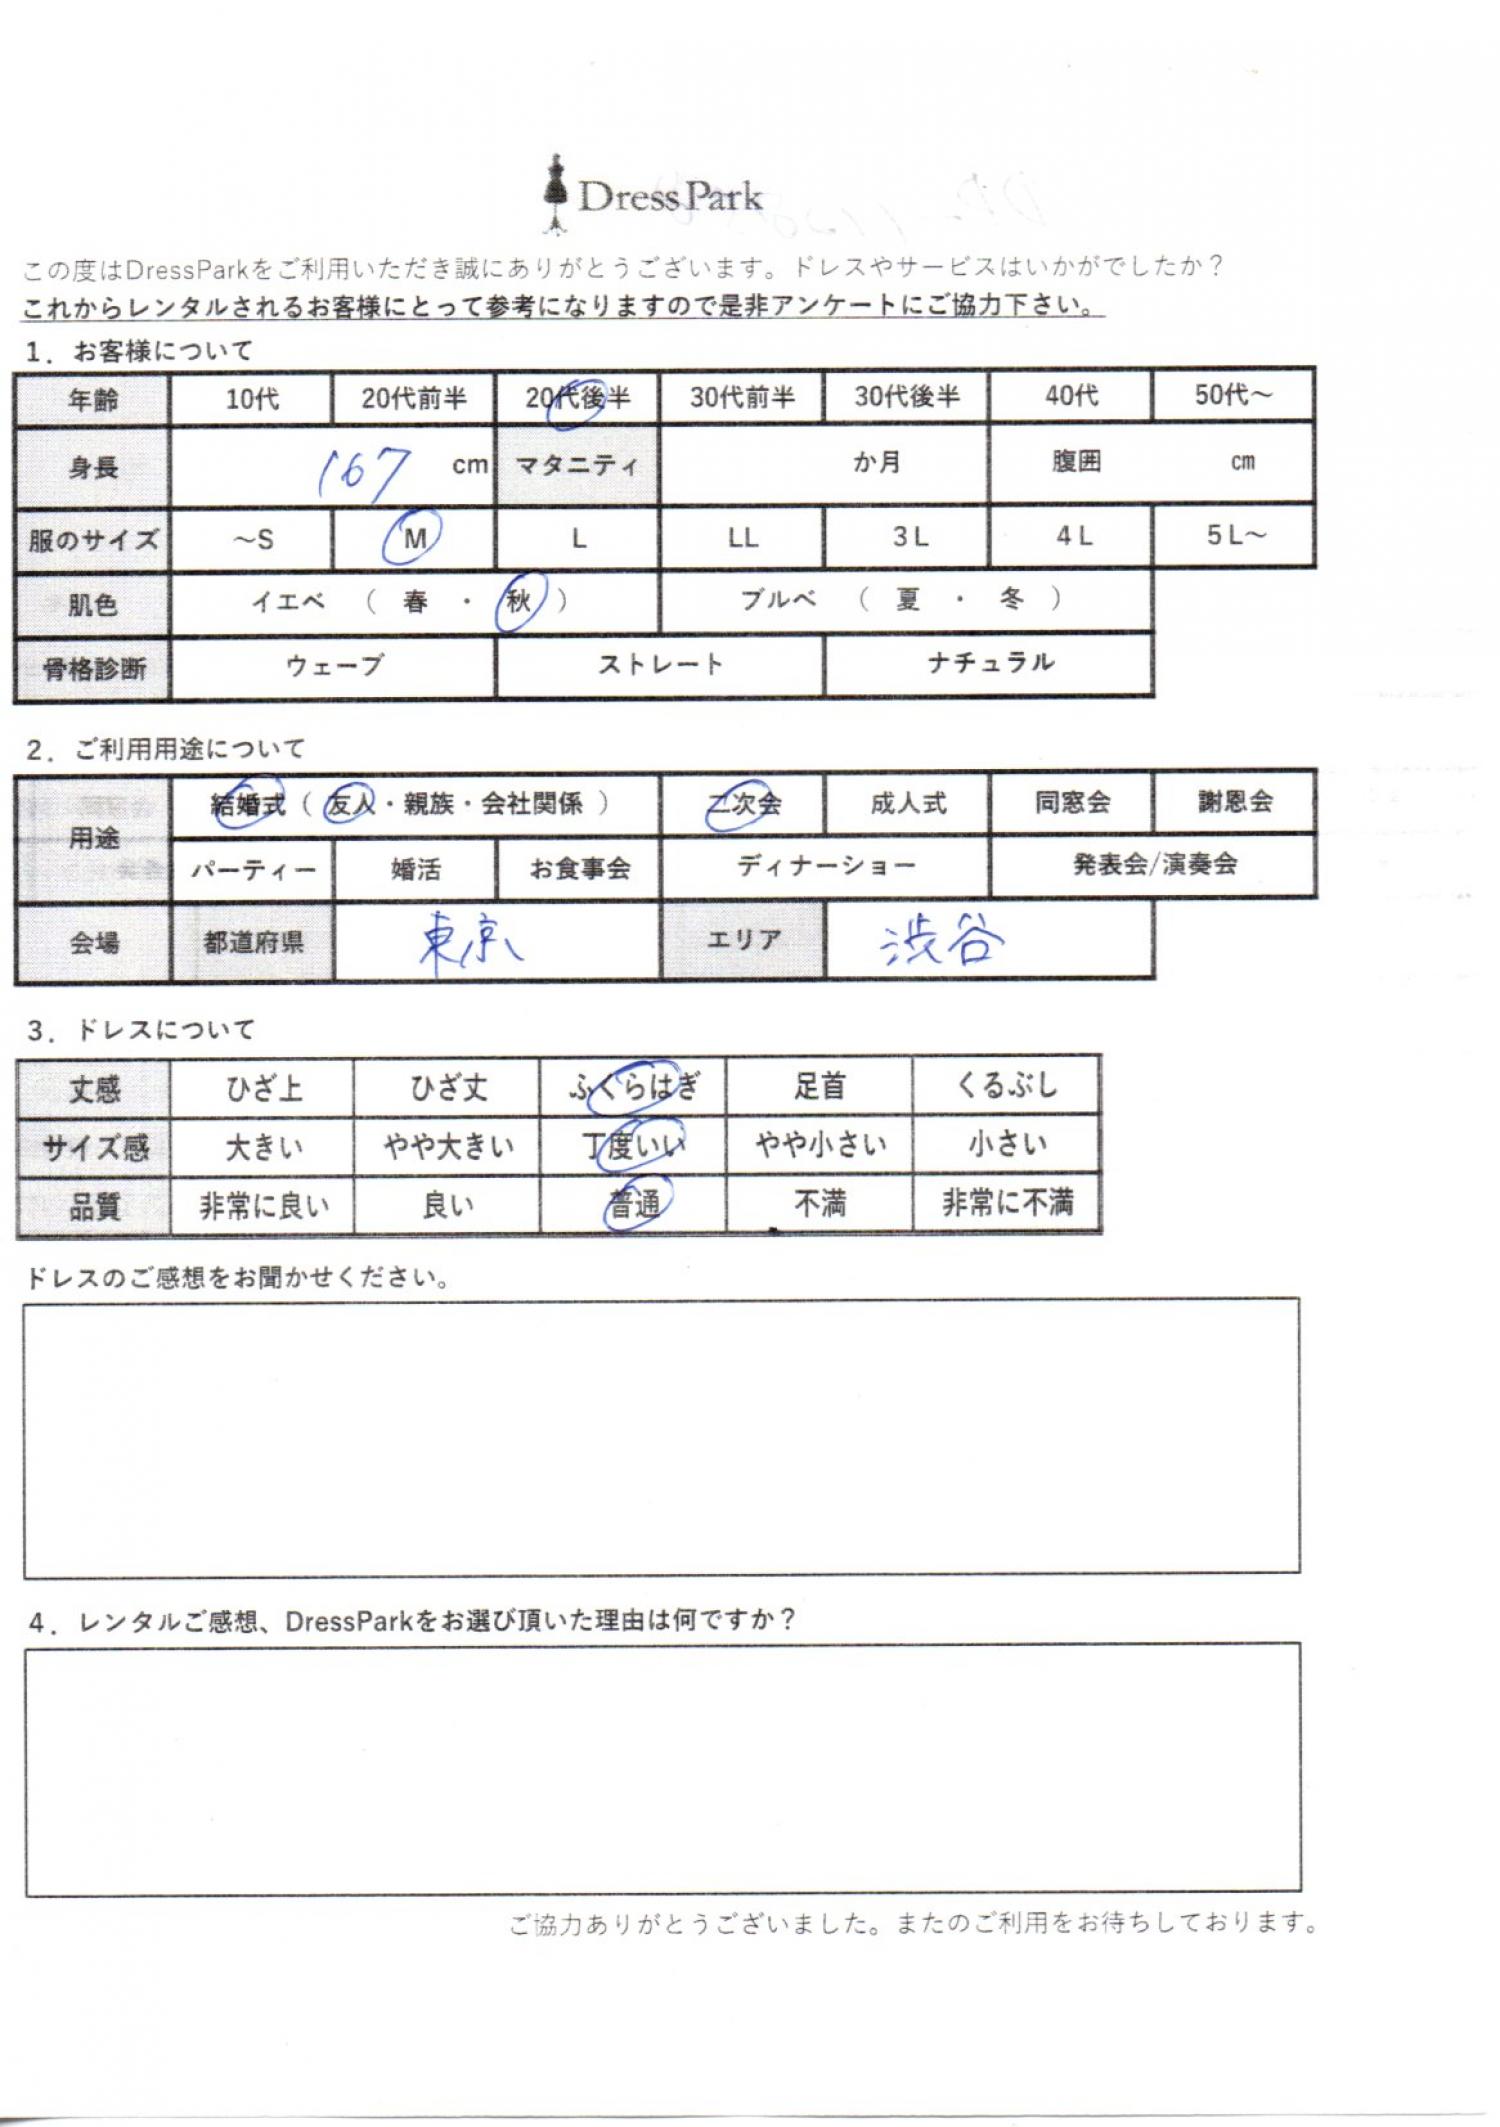 DressPark
この度はDressParkをご利用いただき誠にありがとうございます。ドレスやサービスはいかがでしたか？
これからレンタルされるお客様にとって参考になりますので是非アンケートにご協力下さい。
1．お客様について
年齢 10代 20代前半 20代後半 30代前半 30代後半 40代 50代～
身長 167 cm マタニティ か月 腹囲 ㎝
服のサイズ ～S M L LL 3L 4L 5L～
肌色 イエベ （ 春 ・ 秋 ） ブルベ （ 夏 ・ 冬 ）
骨格診断 ウェーブ ストレート ナチュラル
2．ご利用用途について
用途 結婚式（ 友人・親族・会社関係 ） 二次会 成人式 同窓会 謝恩会
パーティー 婚活 お食事会 ディナーショー 発表会/演奏会
会場 都道府県 東京 エリア 渋谷
3．ドレスについて
丈感 ひざ上 ひざ丈 ふくらはぎ 足首 くるぶし
サイズ感 大きい やや大きい 丁度いい やや小さい 小さい
品質 非常に良い 良い 普通 不満 非常に不満
ドレスのご感想をお聞かせください。
4．レンタルご感想、DressParkをお選び頂いた理由は何ですか？
ご協力ありがとうございました。またのご利用をお待ちしております。